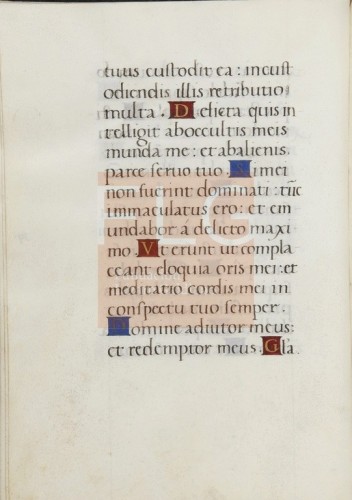 tuus custodit ea: in cust
odiendis illis retributio
multa. Delicta quis in
telligit ab occultis meis
munda me: et ab alienis
parce seruo tuo. Si mei
non fuerint dominati: tūc
immaculatus ero: et em
undabor a delicto maxi
mo. Vt erunt ut compla
ceant eloquia oris mei: et
meditatio cordis mei in
conspectu tuo semper.
Domine adiutor meus:
et redemptor meus. Gla.
FLG